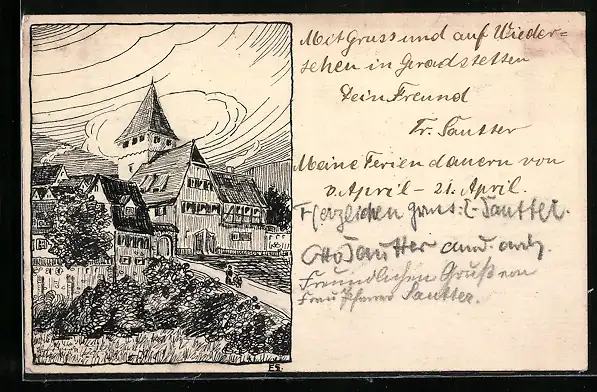 Mit Gruss und auf Wieder-
sehen in Geradstetten
Dein Freund
Fr. Sautter
Meine Ferien dauern von
April – 21. April.
Herzlichen Gruss: E. Sautter.
Otto Sautter cand. arch.
Freundlichen Gruß von
Frau Pfarrer Sautter.
ES.